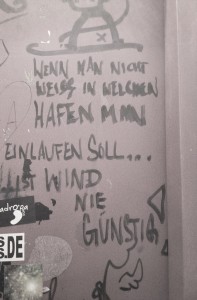 WENN MAN NICHT
WEISS IN WELCHEN
HAFEN MAN
EINLAUFEN SOLL...
IST WIND
NIE
GÜNSTIG
S.DE